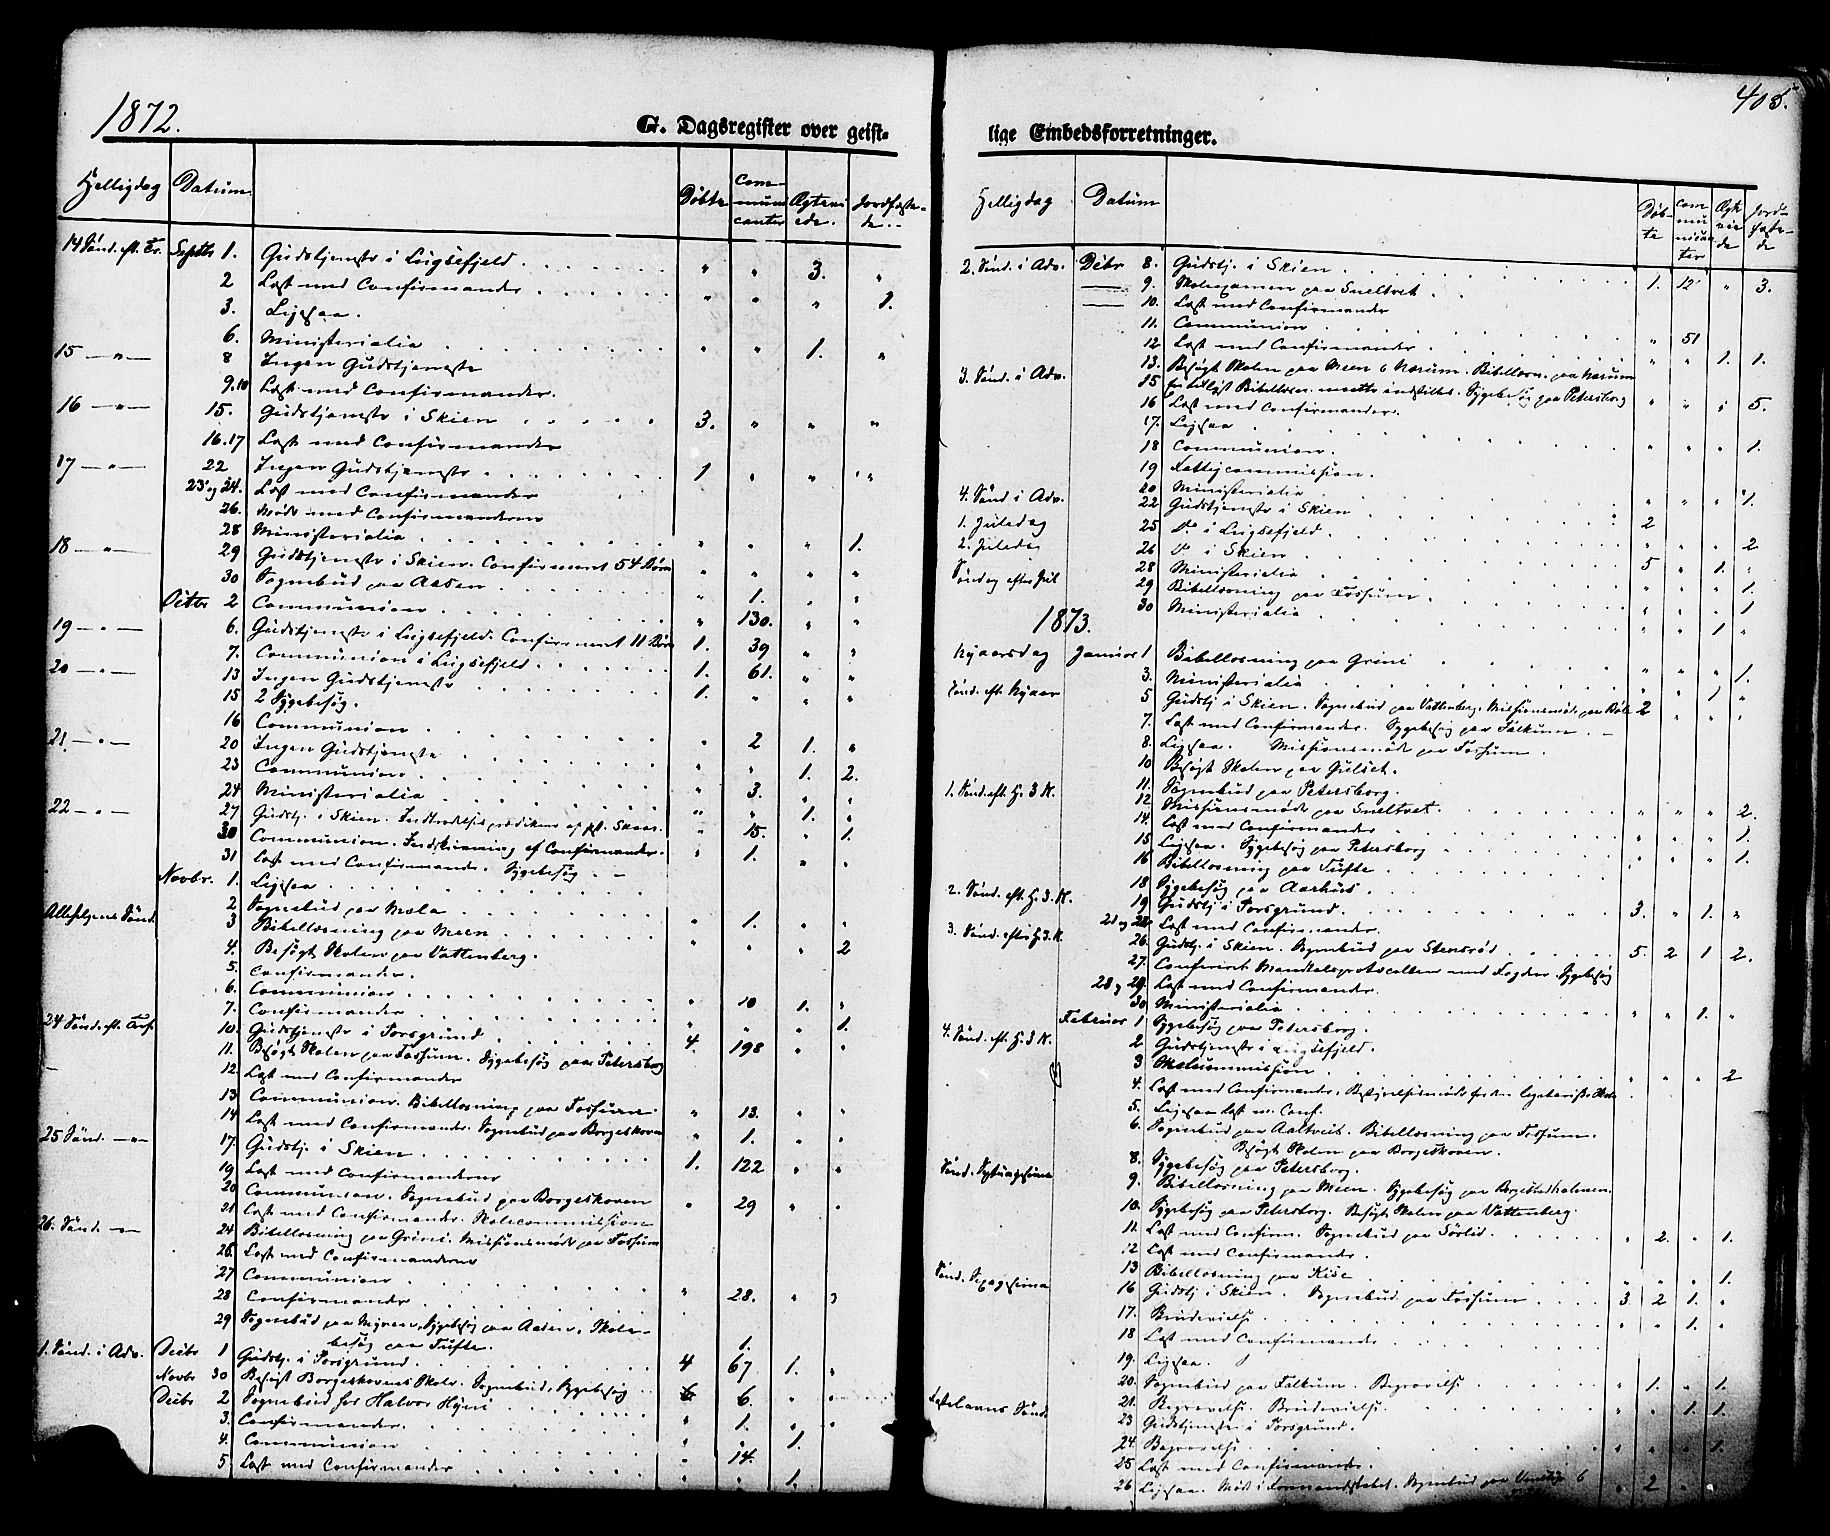 1872.
G. Dagsregister over geist-
Helligdag Datum Døbte Com-muni-canter Ægtevi-ede. Jordfæste-de.
14 Sønd. eft. Tr. Septbr 1. Gudstjeneste i Luksefjeld. " " 3. "
2 Læst med Confirmander " " " 1.
3. Ligsaa.
6. Ministerialia " " 1. "
15 — " — 8 Ingen Gudstjeneste
9.10 Læst med Confirmander.
16 — " — 15. Gudstjeneste i Skien 3. " " "
16.17 Læst med Confirmander
17 — " — 22 Ingen Gudstjeneste 1 " " "
23 og 24. Læst med Confirmander
26. Møde med Confirmanderne
28 Ministerialia " " " 1.
18 — " — 29 Gudstjeneste i Skien. Confirmeret 54 Børn " " " "
30 Sognebud paa Aasen " 1. " "
Octbr 2 Communion " 130. " "
19 — " — 6. Gudstjeneste i Luksefjeld. Confirmeret 11 Børn 1. 39 " "
7. Communion i Luksefjeld 1. 61. " "
20 — " — 13 Ingen Gudstjeneste 1. " " "
15 2 Sygebesøg.
16 Communion " 2 1. "
21. — " — 20 Ingen Gudstjeneste " " 1. 2.
23 Communion " 3. " "
24 Ministerialia " " 1. "
22 — " — 27 Gudstj. i Skien. Indtrædelsesprædiken af pst. " 15. " 1.
30 Communion. Indskrivning af Confirmander. " 1. " "
31 Læst med Confirmander. Sygebesøg
Novbr. 1. Ligsaa
2 Sognebud paa Mæla " 1. " "
Allehelgens Sønd. 3 Bibellæsning paa Meen " " " 2
4. Besøgt Skolen paa Vattenberg.
5. Confirmander.
6. Communion " 10 1. "
7. Confirmander " " " 1.
24 Sønd. eft. Tref. 10. Gudstjeneste i Porsgrund 4. 198 " "
11. Besøgt Skolen paa Fossum. Sygebesøg paa Petersborg
12. Læst med Confirmander
13 Communion. Bibellæsning paa Fossum " 13. " "
14 Læst med Confirmander. Sognebud paa Borgeskoven " 1. " "
25 Sønd. — " — 17. Gudstj. i Skien 1. 122 " "
19 Læst med Confirmanderne
20 Communion. Sognebud paa Borgeskoven " 29 " "
21 Læst med Confirmander. Skolecommission
26. Sønd. — " — 24. Bibellæsning paa Grini. Missionsmøde paa Fossum
26. Læst med Confirmanderne
27 Communion " 28. " "
28 Confirmander
29 Sognebud paa Myren, Sygebesøg paa Aasen, Skole- 1.
besøg paa Tufte.
1. Sønd. i Adv. Decbr 1 Gudstj. i Porsgrund 4 67 1. "
Novbr 30 Besøgt Borgeskovens Skole. Sognebud, Sygebesøg 6. " "
Decbr 2 Sognebud hos Halvor Hyni " 1. " "
3. Confirmander. " " 1.
4. Communion " 14.
5. Læst med Confirmander " " 1.
405.
lige Embedsforretninger.
Helligdag Datum Døb-te Com-muni-can-ter Ægt-vie-de Jord-fæste-de
2. Sønd. i Adv. Decbr 8. Gudstj. i Skien 1. 12 " 3.
— 9. Skoleexamen paa Sneltvet
— 10. Læst med Confirmander
11. Communion " 51
12 Læst med Confirmander " " 1. 1.
13. Besøgt Skolen paa Meen & Narum. Bibellæsn. paa Narum
3. Sønd. i Adv. 15 Bibellæsn. maatte indstilles. Sygebesøg paa Petersborg " " " 5.
16 Læst med Confirmander.
17. Ligsaa " " " 1.
18 Communion.
19 Fattigcommission.
20 Ministerialia " " " 1.
4. Sønd i Adv. 22 Gudstjeneste i Skien 2
1. Juledag 25 Do i Luksefjeld " " " 2
2. Juledag 26 Do i Skien 5 " 1. "
Søndag efter Jul 28 Ministerialia " " " 1.
29 Bibellæsning paa Fossum " " " 1
30 Ministerialia " " 1 "
1873.
Nyaarsdag Januar 1 Bibellæsning paa Grini " " " 1.
3. Ministerialia " " 1 "
Sønd. eft. Nyaar 5 Gudstj i Skien. Sognebud paa Vattenberg. Missionsmøde paa Bøle 2 " " "
7. Læst med Confirmander. Sygebesøg paa Falkum
8. Ligsaa. Missionsmøde paa Fossum
10 Besøgt Skolen paa Gulset.
11. Sognebud paa Petersborg.
1. Sønd. eft. H. 3 K. 12. Missionsmøde paa Sneltvet. " " " 2.
14. Læst med Confirmander " " " 1.
15 Ligsaa. Sygebesøg paa Petersborg " " " 1.
16 Bibellæsning paa Tufte
18 Sygebesøg paa Aarhus.
2. Sønd. eft. H. 3. K. 19 Gudstj i Porsgrund. 3. " 1. "
21 og 22 Læst med Confirmander.
3. Sønd. efter H 3. K. 26. Gudstj. i Skien. Sognebud paa Stensrød 5. 2 1 2.
27. Confereret Mandtalsprotocollen med Fogden. Sygebesøg
28 og 29. Læst med Confirmander.
30 Ministerialia " " 1. "
Februar 1 Sygebesøg paa Petersborg.
4. Sønd. eft. H. 3 K. 2 Gudstjeneste i Luksefjeld.
3 Skolecommission " " " 2
4. Læst med Confirmander,
5. Ligsaa Læst m. Conf.
6. Sognebud paa Aaltveit. Bibellæsning paa Fossum.
Besøgt Skolen paa Borgeskoven.
8. Sygebesøg paa Petersborg.
Sønd. Septuagesima 9. Bibellæsning paa Meen. Sygebesøg paa Borgestadholmen.
10. Sygebesøg paa Petersborg. Besøgt Skolen paa Vattenberg.
11. Læst med Confirm. Sognebud paa Sørlid " 2. " 1.
12 Læst med Confirmander.
13 Bibellæsning paa Kise " " " 1.
Sønd. Sexagesima 16 Gudstj i Skien. Sognebud paa Fossum 3 2 1. "
17. Brudevielse " " 1. "
18 Læst med Confirmander
19. Ligsaa.
20. Sognebud paa Falkum. Begravelse " 1. " 1.
21. Begravelse. Brudevielse. " " 1. 1.
Fastelavns Sønd. 23 Gudstjeneste i Porsgrund.
24. Begravelse " " " 1.
25 Læst med Confirmander.
26 Ligsaa. Møde i Formandskabet. Sognebud paa " 2 " "